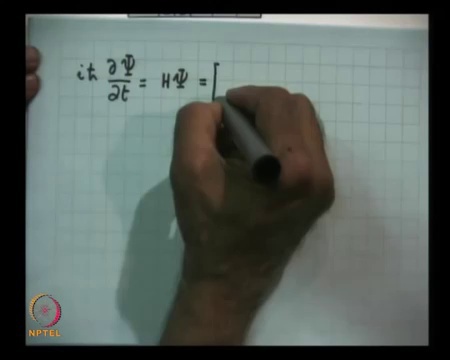 iħ ∂Ψ/∂t = HΨ = [
NPTEL